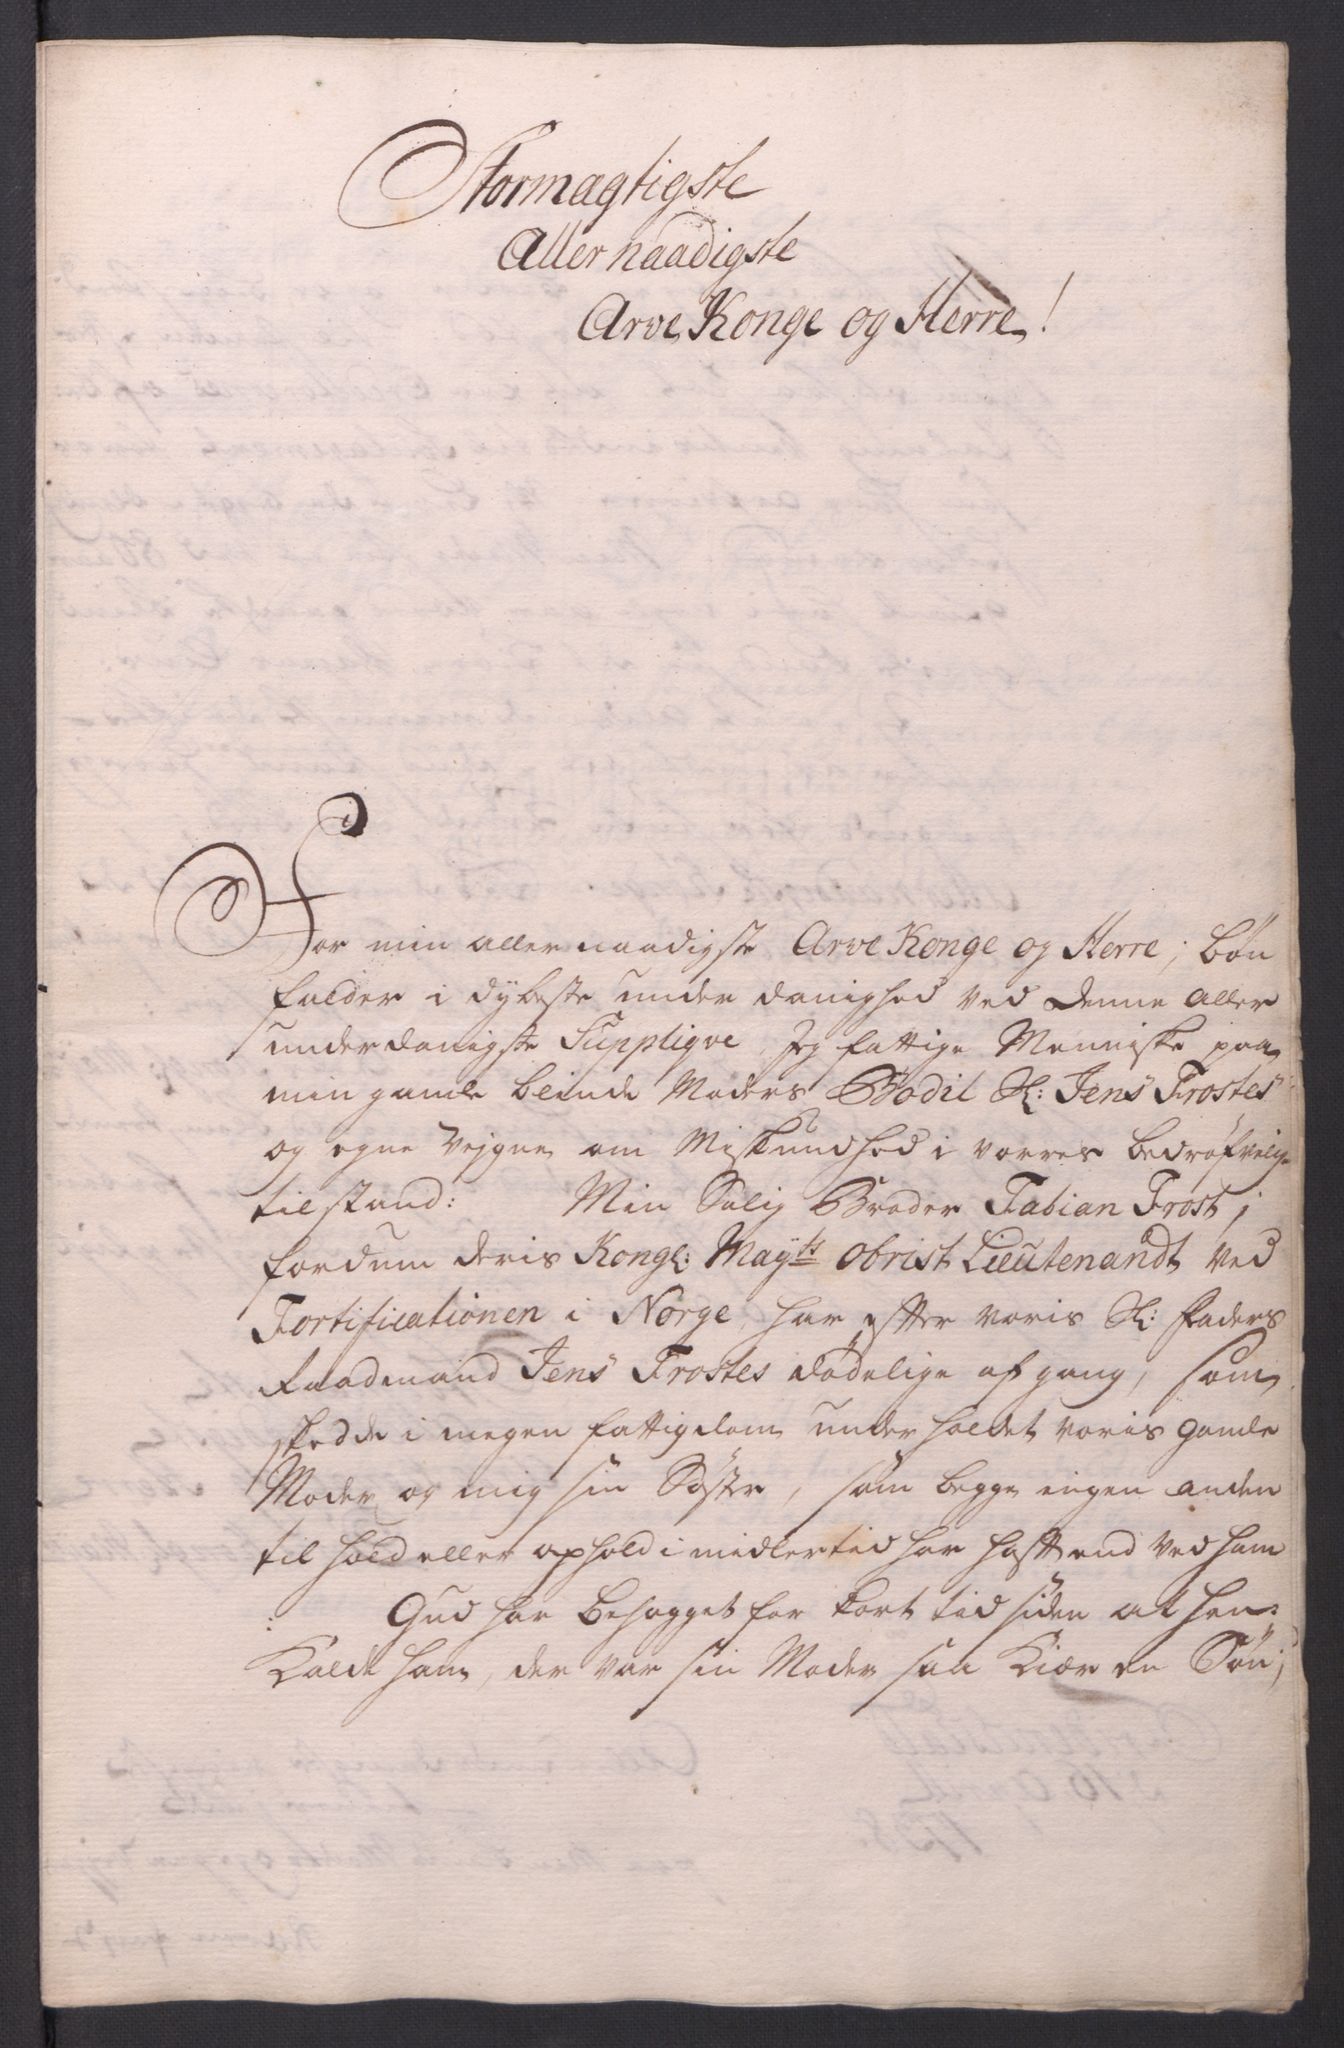 Stormagtigste
Allernaadigste
Arve Konge og Herre!
For min allernaadigste Arve Konge og Herre, bøn
falder i dybeste underdanighed ved denne aller
underdanigste Suppliqve, Jeg fattige Menniske paa
min gamle blinde Moders Bodil Sl: Jens Frostes
og egne vejgne om Miskundhed i vorres bedrøfvelige
tilstand: Min Salig Broder Fabian Frost,
fordum deris Kongl: Mayts Obrist Lieutenandt ved
Fortificationen i Norge, har efter voris Sl: Faders
Raadmand Jens Frostes dødelige afgang, som
skedde i megen fattigdom underholdet voris gamle
Moder og mig sin Søster, som begge ingen anden
tilhold eller ophold i midlertid har haft end ved ham
Gud har behaget for kort tid siden at hen-
kalde ham, der var sin Moder saa kiær en Søn,